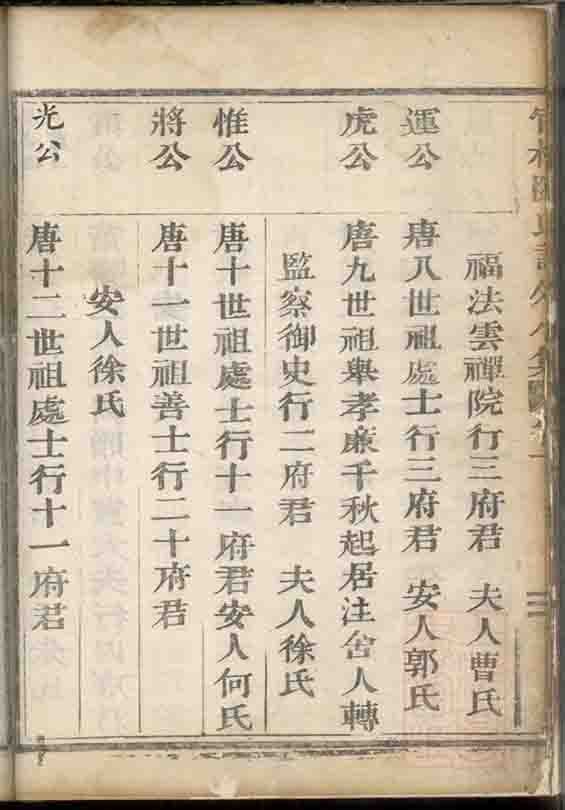 福法雲禪院行三府君　夫人曹氏
運公　唐八世祖處士行三府君　安人郭氏
虎公　唐九世祖舉孝廉千秋起居注舍人轉
監察御史行二府君　夫人徐氏
惟公　唐十世祖處士行十一府君安人何氏
將公　唐十一世祖善士行二十府君
安人徐氏
光公　唐十二世祖處士行十一府君